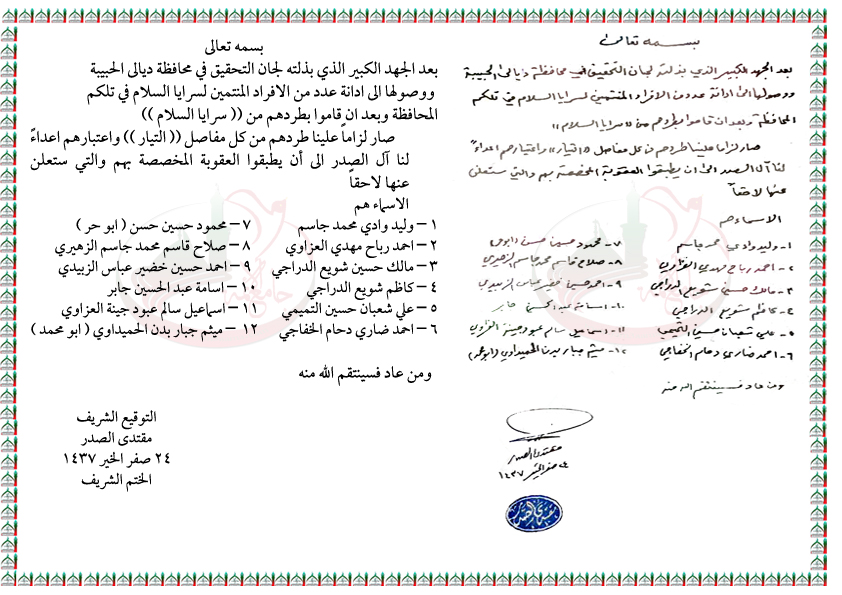 بسمه تعالى
بعد الجهد الكبير الذي بذلته لجان التحقيق في محافظة ديالى الحبيبة
ووصولها الى ادانة عدد من الافراد المنتمين لسرايا السلام في تلكم
المحافظة وبعد ان قاموا بطردهم من «سرايا السلام»
صار لزاما علينا طردهم من كل مفاصل «التيار» واعتبارهم اعداءً
لنا آل الصدر الى ان يطبقوا العقوبة المخصصة بهم والتي ستعلن
عنها لاحقاً
الاسماء هم
١- وليد وادي محمد جاسم
٢- احمد رباح مهدي العزاوي
٣- مالك حسين شويع الدراجي
٤- كاظم شويع الدراجي
٥- علي شعبان حسين التميمي
٦- احمد ضاري دحام الخفاجي
٧- محمود حسين حسن (ابو حر)
٨- صلاح قاسم محمد جاسم الزهيري
٩- احمد حسين خضير عباس الزبيدي
١٠- اسامة عبد الحسين جابر
١١- اسماعيل سالم عبود جينة العزاوي
١٢- ميثم جبار بدن الحميداوي (ابو محمد)
ومن عاد فسينتقم الله منه
مقتدى الصدر
٢٤ صفر الخير ١٤٣٧
بسمه تعالى
بعد الجهد الكبير الذي بذلته لجان التحقيق في محافظة ديالى الحبيبة
ووصولها الى ادانة عدد من الافراد المنتمين لسرايا السلام في تلكم
المحافظة وبعد ان قاموا بطردهم من (( سرايا السلام ))
صار لزاماً علينا طردهم من كل مفاصل (( التيار )) واعتبارهم اعداءً
لنا آل الصدر الى أن يطبقوا العقوبة المخصصة بهم والتي ستعلن
عنها لاحقاً
الاسماء هم
١ – وليد وادي محمد جاسم
٢ – احمد رباح مهدي العزاوي
٣ – مالك حسين شويع الدراجي
٤ – كاظم شويع الدراجي
٥ – علي شعبان حسين التميمي
٦ – احمد ضاري دحام الخفاجي
٧ – محمود حسين حسن ( ابو حر )
٨ – صلاح قاسم محمد جاسم الزهيري
٩ – احمد حسين خضير عباس الزبيدي
١٠ – اسامة عبد الحسين جابر
١١ – اسماعيل سالم عبود جينة العزاوي
١٢ – ميثم جبار بدن الحميداوي ( ابو محمد )
ومن عاد فسينتقم الله منه
التوقيع الشريف
مقتدى الصدر
٢٤ صفر الخير ١٤٣٧
الختم الشريف